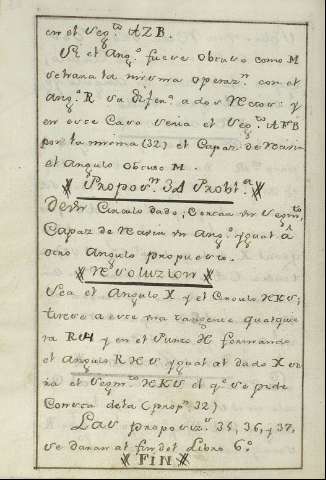 en el Seg.to AZB.
Si el Ang.o fuere obtuso como M
se hara la misma operaz.n con el
ang.o R su difer.a a dos Rectos: y
en este Caso seria el Seg.to AFB
por la misma (32) el Capaz de Recivir
el Angulo obtuso M.
Propos.n 34 Probl.a
De un Circulo dado, Cortar un Segm.to
Capaz de Recivir un Ang.o ygual a
otro Angulo propuesto.
Resoluzion
Sea el Angulo X y el Circulo HKS;
tirese a este una tangente qualquie
ra RH y en el Punto H formando
el angulo RHS ygual al dado X se
rá el Segm.to HKS el q.e se pide
Consta de la (prop.n 32)
Las proposiz.s 35, 36, y 37,
se daran al fin del Libro 6.o
FIN